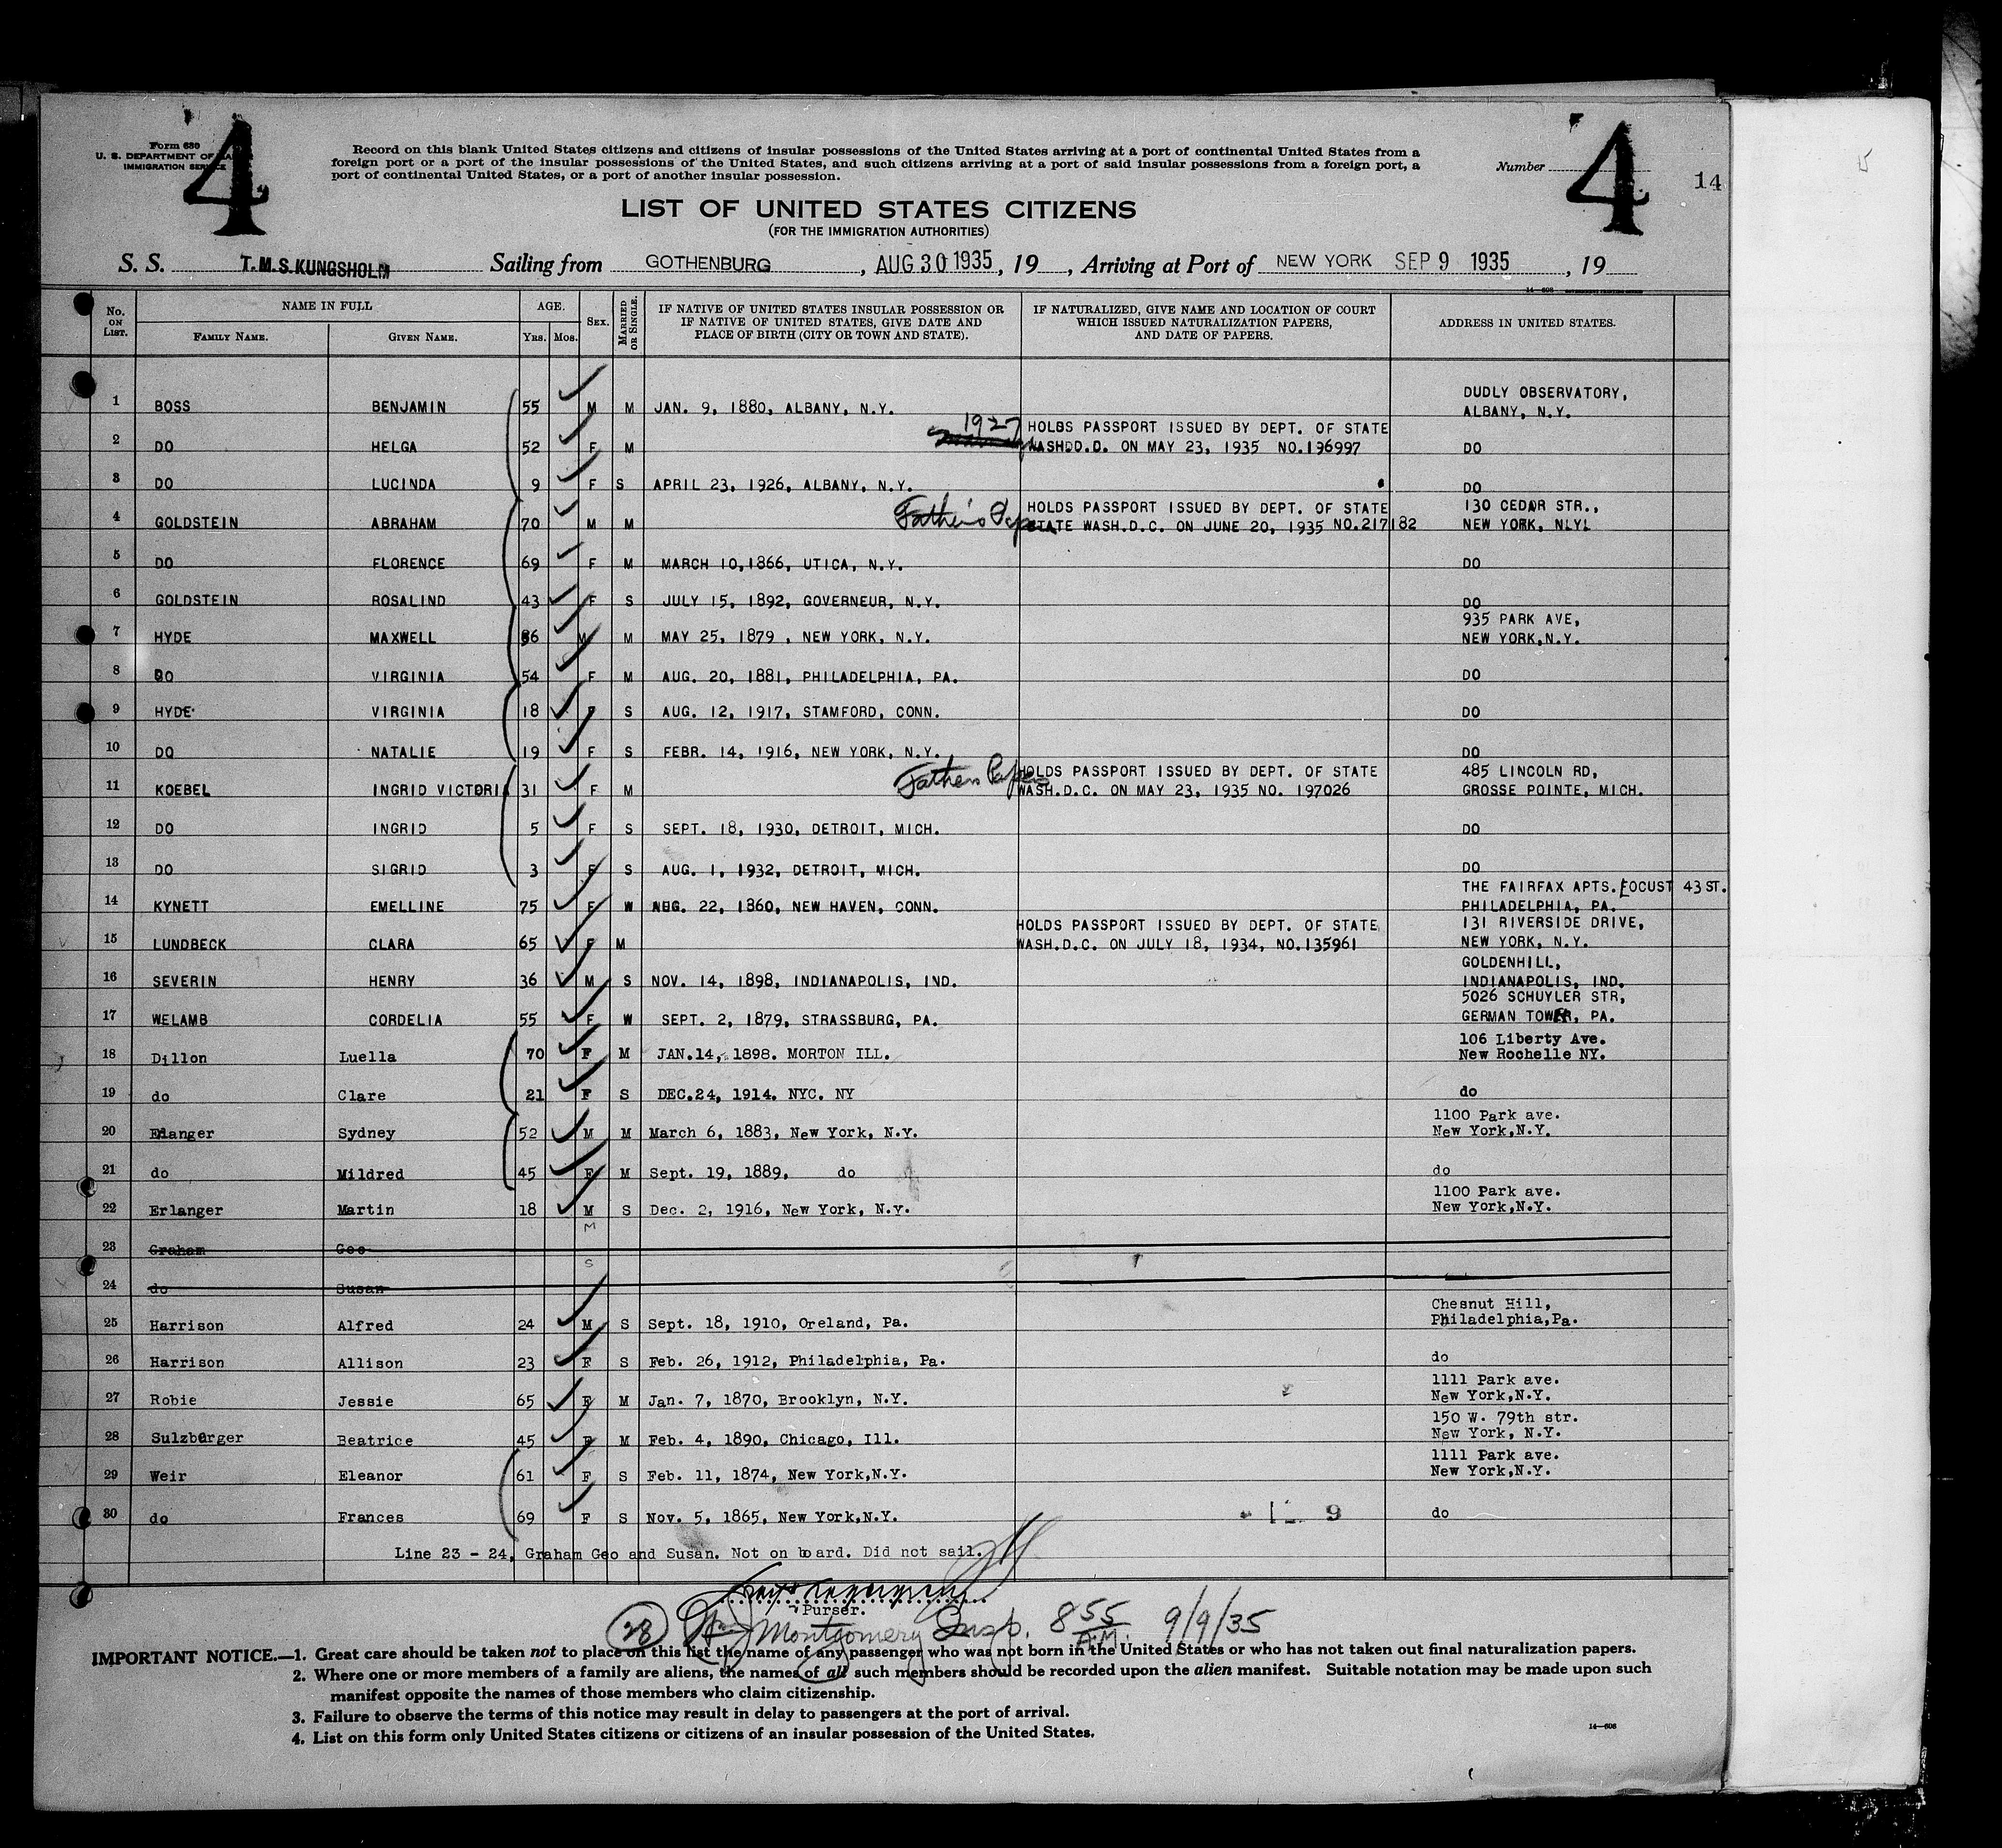 4
4
Form 630
U. S. DEPARTMENT OF
IMMIGRATION SERVICE
Record on this blank United States citizens and citizens of insular possessions of the United States arriving at a port of continental United States from a
foreign port or a port of the insular possessions of the United States, and such citizens arriving at a port of said insular possessions from a foreign port, a
port of continental United States, or a port of another insular possession.
Number
14
LIST OF UNITED STATES CITIZENS
(FOR THE IMMIGRATION AUTHORITIES)
S. S. T.M.S. KUNGSHOLM Sailing from GOTHENBURG, AUG 30 1935, 19, Arriving at Port of NEW YORK SEP 9 1935, 19
14—608
No. ON LIST. NAME IN FULL AGE. SEX. MARRIED OR SINGLE. IF NATIVE OF UNITED STATES INSULAR POSSESSION OR IF NATIVE OF UNITED STATES, GIVE DATE AND PLACE OF BIRTH (CITY OR TOWN AND STATE). IF NATURALIZED, GIVE NAME AND LOCATION OF COURT WHICH ISSUED NATURALIZATION PAPERS, AND DATE OF PAPERS. ADDRESS IN UNITED STATES.
FAMILY NAME. GIVEN NAME. YRS. MOS.
DUDLY OBSERVATORY,
1 BOSS BENJAMIN 55 M M JAN. 9, 1880, ALBANY, N.Y. ALBANY, N.Y.
1927 HOLDS PASSPORT ISSUED BY DEPT. OF STATE
2 DO HELGA 52 F M WASHDD.D. ON MAY 23, 1935 NO.196997 DO
3 DO LUCINDA 9 F S APRIL 23, 1926, ALBANY, N.Y. DO
Father's HOLDS PASSPORT ISSUED BY DEPT. OF STATE 130 CEDAR STR.,
4 GOLDSTEIN ABRAHAM 70 M M STATE WASH.D.C. ON JUNE 20, 1935 NO.217182 NEW YORK, NLYL
5 DO FLORENCE 69 F M MARCH 10,1866, UTICA, N.Y. DO
6 GOLDSTEIN ROSALIND 43 F S JULY 15, 1892, GOVERNEUR, N.Y. DO
935 PARK AVE,
7 HYDE MAXWELL 86 M M MAY 25, 1879 , NEW YORK, N.Y. NEW YORK,N.Y.
8 DO VIRGINIA 54 F M AUG. 20, 1881, PHILADELPHIA, PA. DO
9 HYDE VIRGINIA 18 F S AUG. 12, 1917, STAMFORD, CONN. DO
10 DO NATALIE 19 F S FEBR. 14, 1916, NEW YORK, N.Y. DO
Fathers Papers HOLDS PASSPORT ISSUED BY DEPT. OF STATE 485 LINCOLN RD,
11 KOEBEL INGRID VICTORIA 31 F M WASH.D.C. ON MAY 23, 1935 NO. 197026 GROSSE POINTE, MICH.
12 DO INGRID 5 F S SEPT. 18, 1930, DETROIT, MICH. DO
13 DO SIGRID 3 F S AUG. 1, 1932, DETROIT, MICH. DO
THE FAIRFAX APTS. LOCUST 43 ST.
14 KYNETT EMELLINE 75 F W AUG. 22, 1860, NEW HAVEN, CONN. PHILADELPHIA, PA.
HOLDS PASSPORT ISSUED BY DEPT. OF STATE 131 RIVERSIDE DRIVE,
15 LUNDBECK CLARA 65 F M WASH.D.C. ON JULY 18, 1934, NO.135961 NEW YORK, N.Y.
GOLDENHILL,
16 SEVERIN HENRY 36 M S NOV. 14, 1898, INDIANAPOLIS, IND. INDIANAPOLIS, IND.
5026 SCHUYLER STR,
17 WELAMB CORDELIA 55 F W SEPT. 2, 1879, STRASSBURG, PA. GERMAN TOWER, PA.
106 Liberty Ave.
18 Dillon Luella 70 F M JAN.14, 1898. MORTON ILL. New Rochelle NY.
19 do Clare 21 F S DEC.24, 1914. NYC. NY do
1100 Park ave.
20 Erlanger Sydney 52 M M March 6, 1883, New York, N.Y. New York,N.Y.
21 do Mildred 45 F M Sept. 19, 1889, do do
1100 Park ave.
22 Erlanger Martin 18 M S Dec. 2, 1916, New York, N.Y. New York,N.Y.
M
23 Graham Geo
S
24 do Susan
Chesnut Hill,
25 Harrison Alfred 24 M S Sept. 18, 1910, Oreland, Pa. Philadelphia,Pa.
26 Harrison Allison 23 F S Feb. 26, 1912, Philadelphia, Pa. do
1111 Park ave.
27 Robie Jessie 65 F M Jan. 7, 1870, Brooklyn, N.Y. New York,N.Y.
150 W. 79th str.
28 Sulzberger Beatrice 45 F M Feb. 4, 1890, Chicago, Ill. New York, N.Y.
1111 Park ave.
29 Weir Eleanor 61 F S Feb. 11, 1874, New York,N.Y. New York,N.Y.
30 do Frances 69 F S Nov. 5, 1865, New York,N.Y. do
Line 23 - 24, Graham Geo and Susan. Not on board. Did not sail.
Purser.
28 Montgomery Insp. 8 55 A.M. 9/9/35
IMPORTANT NOTICE.—1. Great care should be taken not to place on this list the name of any passenger who was not born in the United States or who has not taken out final naturalization papers.
2. Where one or more members of a family are aliens, the names of all such members should be recorded upon the alien manifest. Suitable notation may be made upon such
manifest opposite the names of those members who claim citizenship.
3. Failure to observe the terms of this notice may result in delay to passengers at the port of arrival.
4. List on this form only United States citizens or citizens of an insular possession of the United States.
14—608